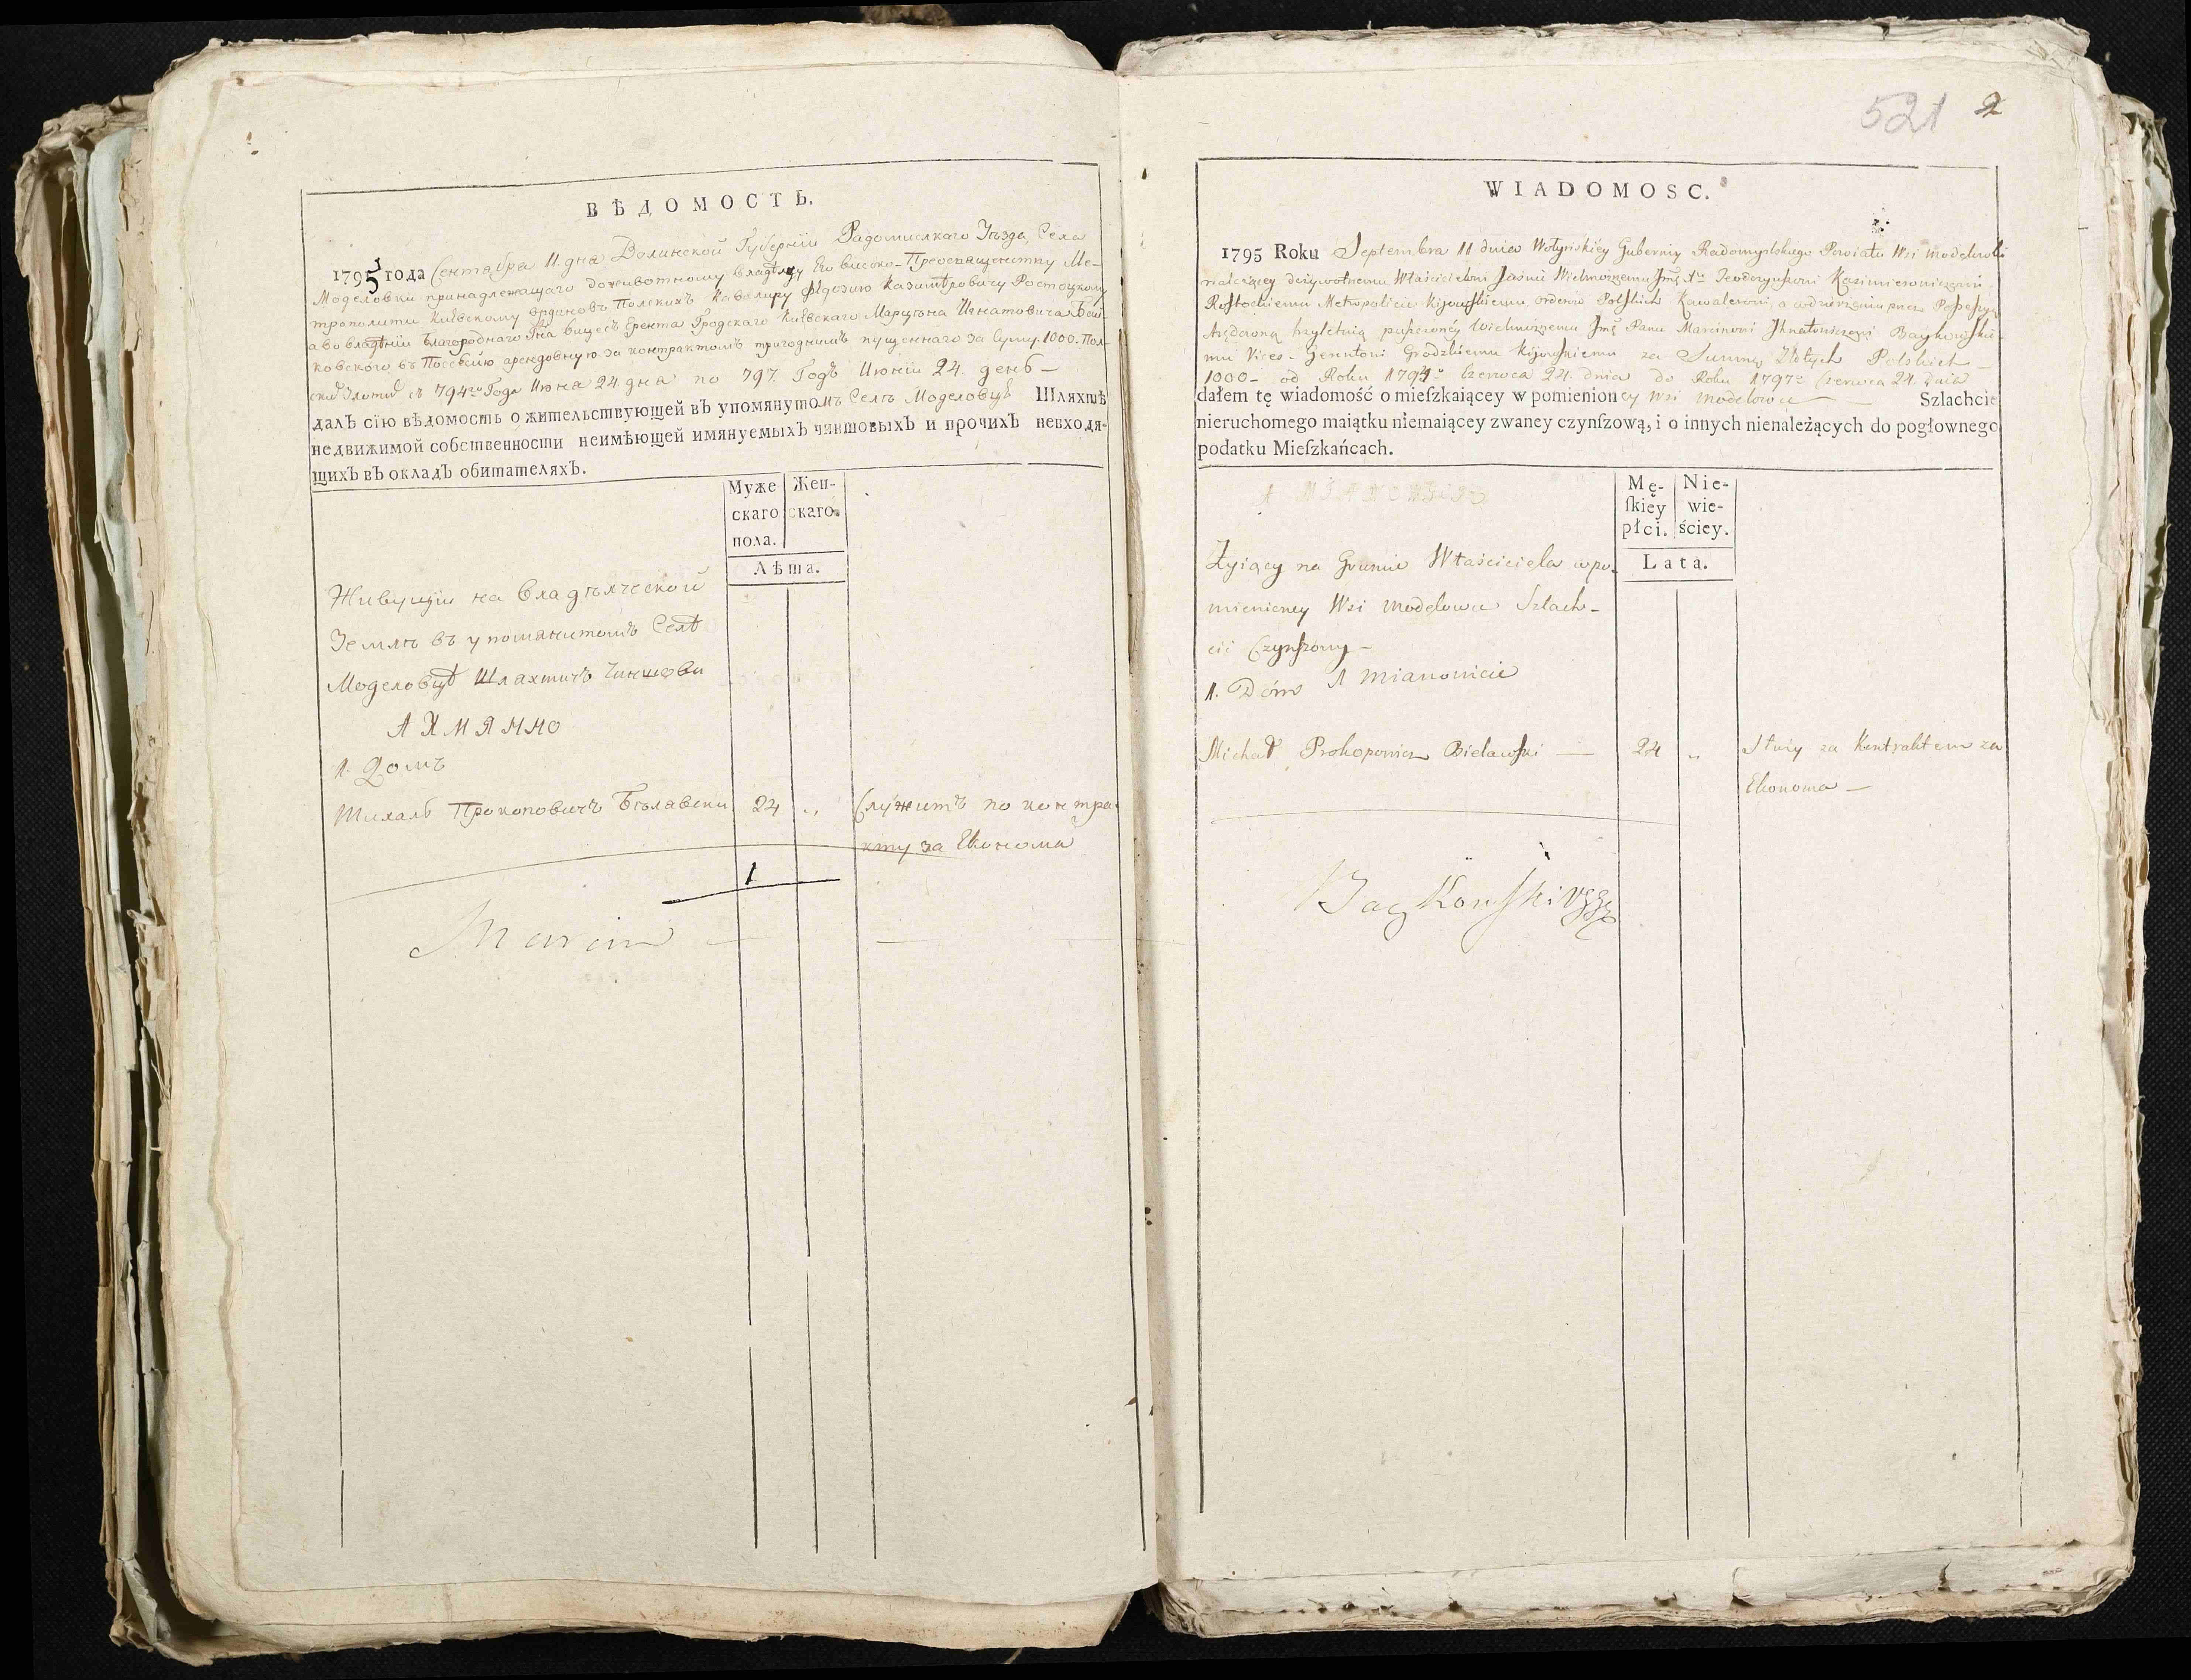 ВѢДОМОСТЬ.
1795 года Сентабра 11. дна Волинской Губерніи Радомислкаго Уѣзда, Села
Моделовки принадлежащаго доживотному владѣлцу Его високо-Преосвященству Ме-
трополити Киѣвскому ординовъ Полскихъ Кавалиру Ѳѣдозию Казимѣровичу Ростоцкому
а во владѣніи Благородного Пна вицесъ Ерента Гродскаго Киѣвскаго Марцѣона Игнатовича Бай-
ковского, въ Поссесію арендовную за контрактомъ тригоднимъ пущенного за сумму 1000. Пол-
ских Злотих съ 794го Года Июна 24 дна по 797. Годъ Июніи 24. денб —
далъ сїю вѣдомость о жительствующей въ упомянутомъ Селѣ Моделовцѣ Шляхтѣ
недвижимой собственности неимѣющей имянуемыхъ чиншовыхъ и прочихъ невходя-
щихъ въ окладъ обитателяхъ.
Муже- Жен-
скаго скаго.
пола.
Лѣта.
Живущіи на владѣлческой
Землѣ въ упоманитомъ Селѣ
Моделовцѣ Шлахтичъ Чиншови
А ИМЯННО
1. Домъ
Михалъ Прокоповичъ Бѣлавски 24 „ Служитъ по контра-
кту за Економа
1
Marcin —
521 2
WIADOMOSC.
1795 Roku Septembra 11 dnia Wołyńskiey Gubernij Radomyślskiego Powiatu Wsi Modelowki
należącey dożywotniemu Właścicielowi Jaśnie Wielmożnemu Jmć Xu Teodozyuszowi Kazimierowiczowi
Rostockiemu Metropolicie Kijowskiemu, orderow Polskich Kawalerowi, a w dzierżeniu przez Possessyą
Arędowną trzyletnią puszczoney Wielmożnemu Jmć Panu Marcinowi Jhnatowiczowi Baykowskie-
mu Vices-Gerentowi Grodzkiemu Kijowskiemu za Summę Złotych Polskich —
1000 – od Roku 1794o Czerwca 24. dnia do Roku 1797o Czerwca 24. Dnia
dałem tę wiadomość o mieſzkaiącey w pomienioncy Wsi Modelowce Szlachcie
nieruchomego maiątku niemaiącey zwaney czynſzową, i o innych nienależących do pogłownego
podatku Mieſzkańcach.
Mę- Nie-
ſkiey wie-
płci. ściey.
Lata.
Żyiący na Gruncie Właściciela w po-
mienioney Wsi Modelowce Szlach-
cic Czynszowy –
1. Dóm A Mianowicie
Michał Prokopowicz Bielawski — 24 „ Służy za Kontraktem za
Ekonoma —
Baykowski VGGK